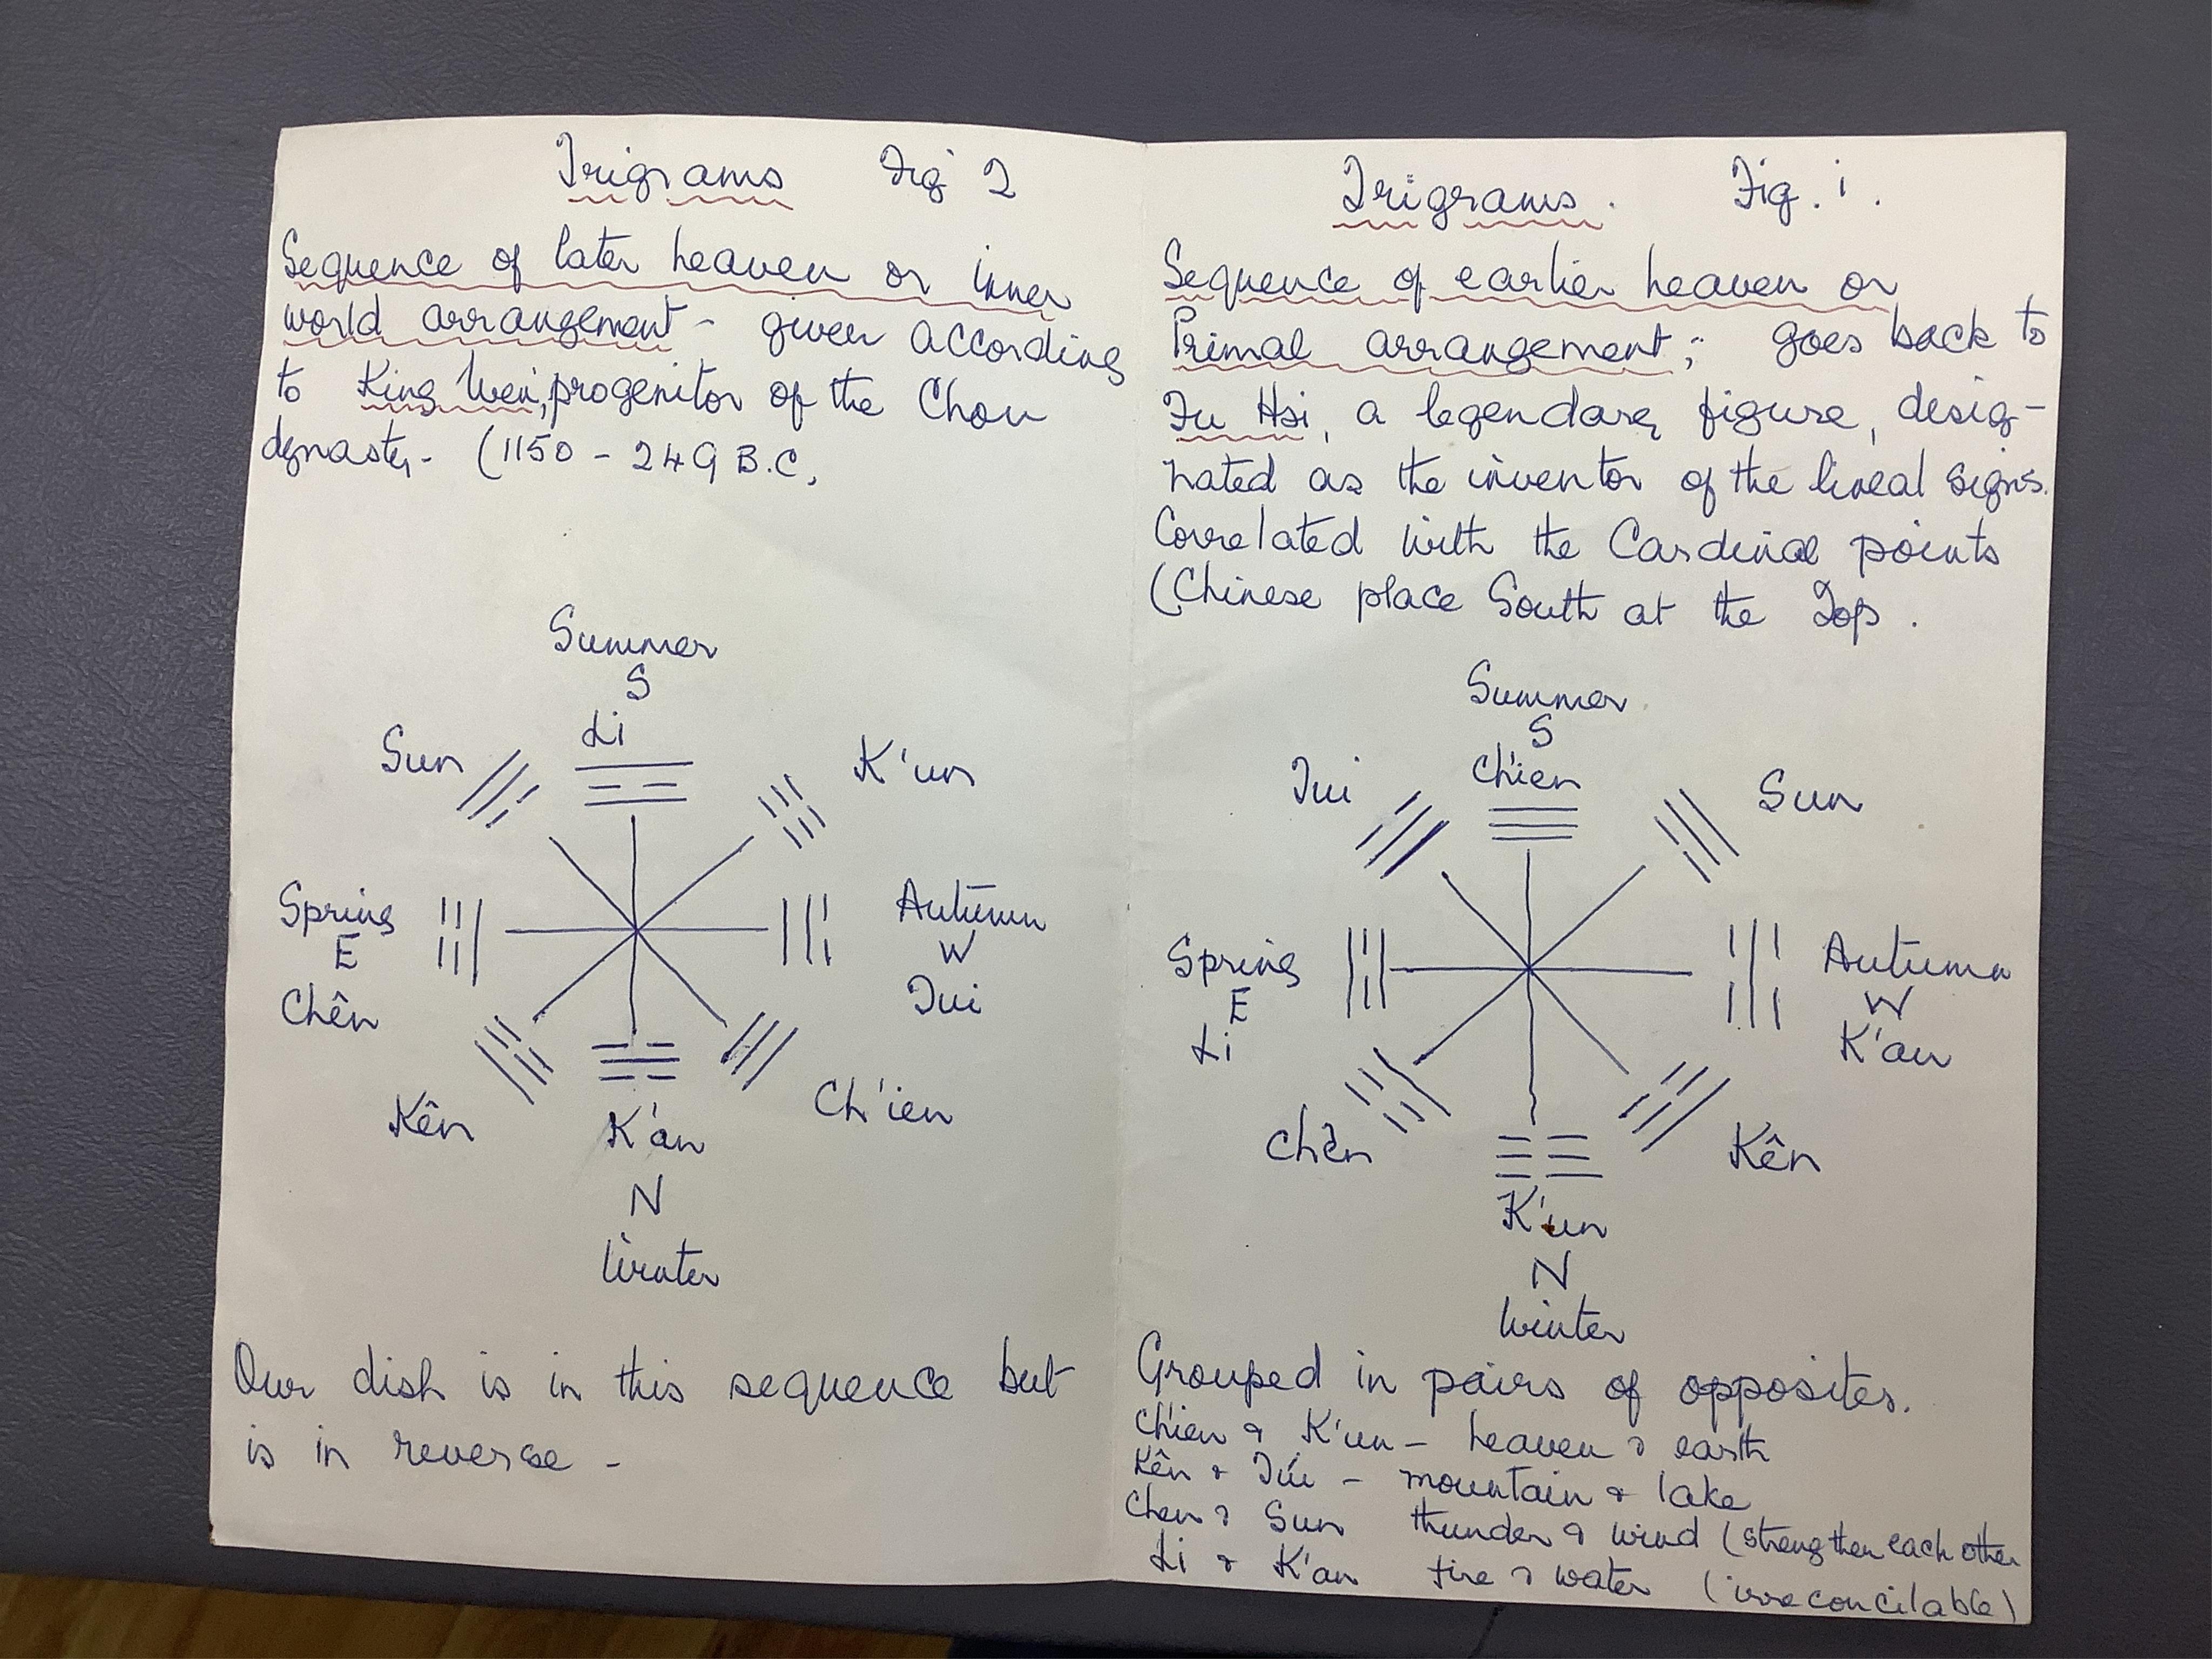 Trigrams Fig 2
Sequence of later heaven or inner
world arrangement - given according
to King Wen, progenitor of the Chou
dynasty - (1150 - 249 B.C.
Summer
S
Li
Sun
K'un
Spring
E
Chên
Autumn
W
Tui
Kên
K'an
N
Winter
Ch'ien
Our dish is in this sequence but
is in reverse -
Trigrams. Fig. i.
Sequence of earlier heaven or
Primal arrangement; goes back to
Fu Hsi, a legendary figure, desig-
nated as the inventor of the lineal signs.
Correlated with the Cardinal points
(Chinese place South at the Top.
Summer
S
Ch'ien
Tui
Sun
Spring
E
Li
Autumn
W
K'an
Chên
K'un
N
Winter
Kên
Grouped in pairs of opposites.
Ch'ien & K'un - heaven & earth
Kên & Tui - mountain & lake
Chen & Sun thunder & wind (strengthen each other
Li & K'an fire & water (irreconcilable)